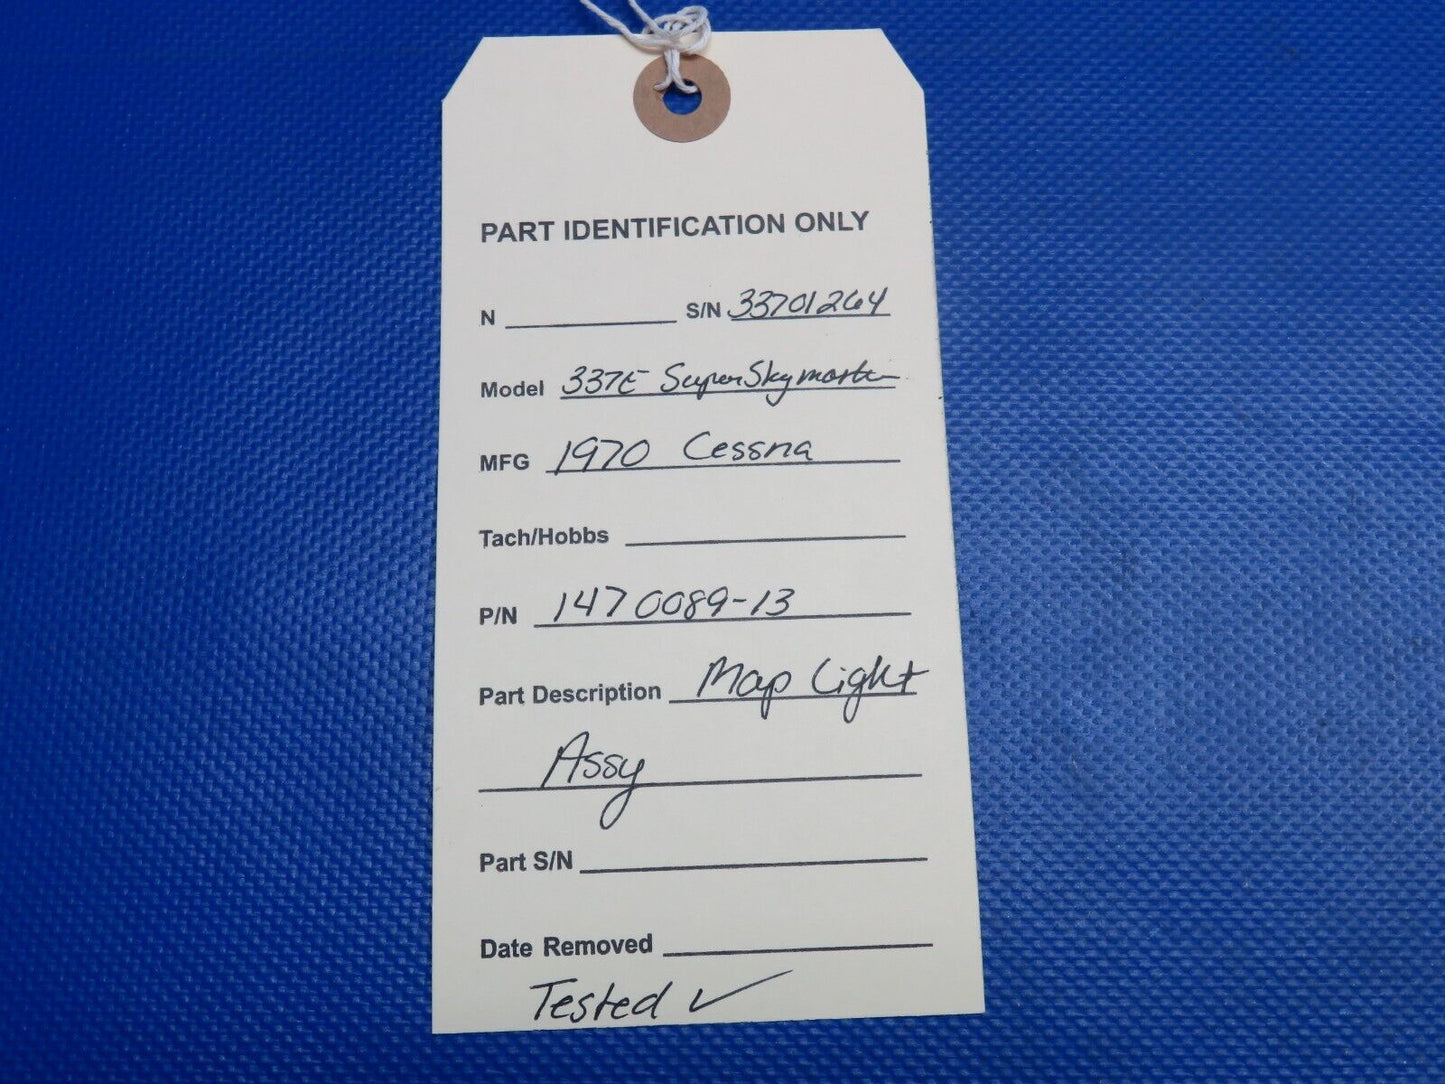 PART IDENTIFICATION ONLY
N S/N 33701264
Model 337E Super Skymaster
MFG 1970 Cessna
Tach/Hobbs
P/N 1470089-13
Part Description Map Light
Assy
Part S/N
Date Removed
Tested ✓